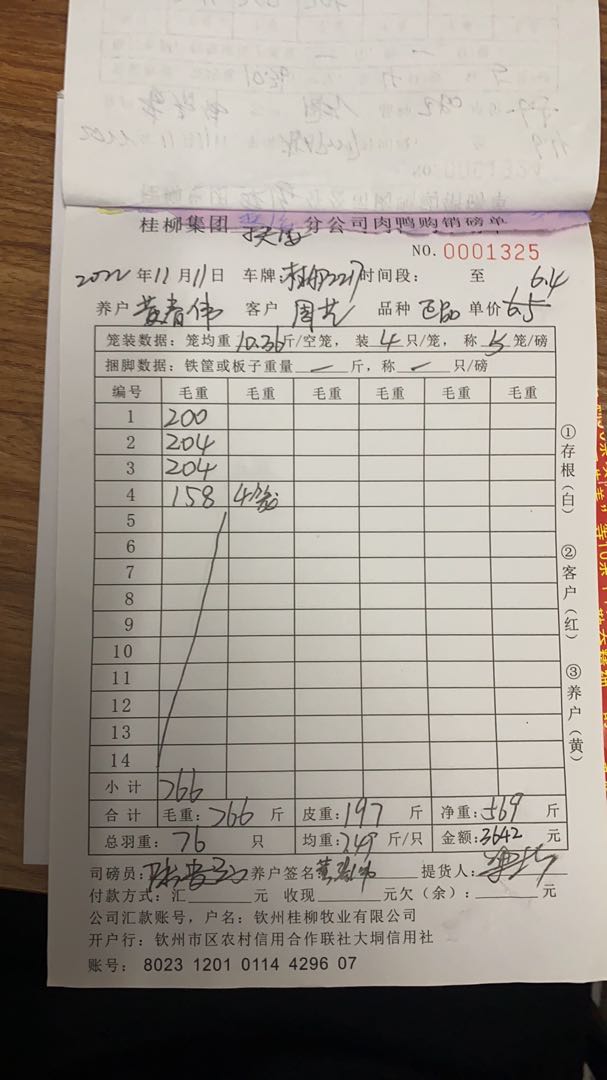 桂柳集团 分公司肉鸭购销磅单
NO. 0001325
2022 年 11 月 11 日 车牌: 2217 时间段: 至
养户 黄春伟 客户 周艺 品种 正品 单价 6.5 6.4
笼装数据: 笼均重 10.36 斤/空笼, 装 4 只/笼, 称 5 笼/磅
捆脚数据: 铁筐或板子重量 — 斤, 称 — 只/磅
编号 毛重 毛重 毛重 毛重 毛重 毛重
1 200
2 204
3 204
4 158 4笼
5
6
7
8
9
10
11
12
13
14
小计 766
合计 毛重: 766 斤 皮重: 197 斤 净重: 569 斤
总羽重: 76 只 均重: 7.49 斤/只 金额: 3642 元
司磅员: 养户签名 黄春伟 提货人:
付款方式: 汇 元 收现 元欠(余): 元
公司汇款账号, 户名: 钦州桂柳牧业有限公司
开户行: 钦州市区农村信用合作联社大垌信用社
账号: 8023 1201 0114 4296 07
①存根(白)
②客户(红)
③养户(黄)